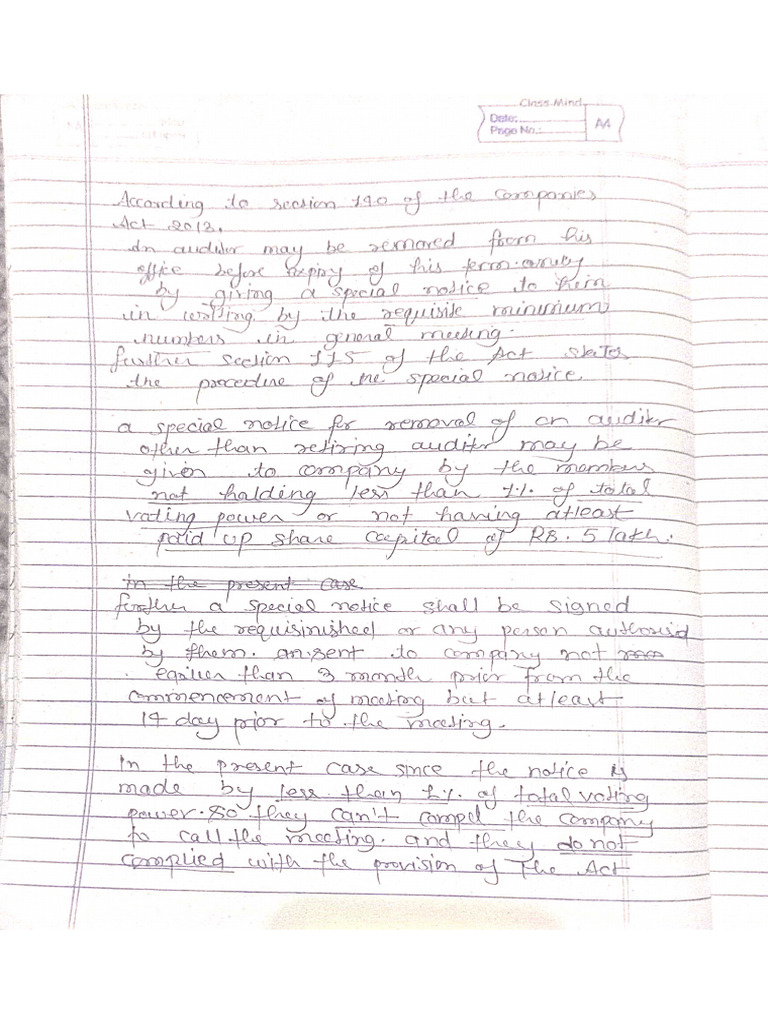 Class Mind
Date:
Page No.:
AA
According to section 140 of the Companies
Act 2013.
An auditor may be removed from his
office before expiry of his term
by giving a special notice to them
in writing by the requisite minimum
numbers in general meeting.
further section 115 of the Act states
the procedure of the special notice.
a special notice for removal of an auditor
other than retiring auditor may be
given to company by the members
not holding less than 1% of total
voting power or not having atleast
paid up share capital of RS. 5 lakh.
in the present case
further a special notice shall be signed
by the or any person authorised
by them. sent to company not
earlier than 3 month prior from the
commencement of meeting but atleast
14 day prior to the meeting.
In the present case since the notice is
made by less than 1% of total voting
power. So they can't compel the company
to call the meeting. and they do not
complied with the provision of The Act